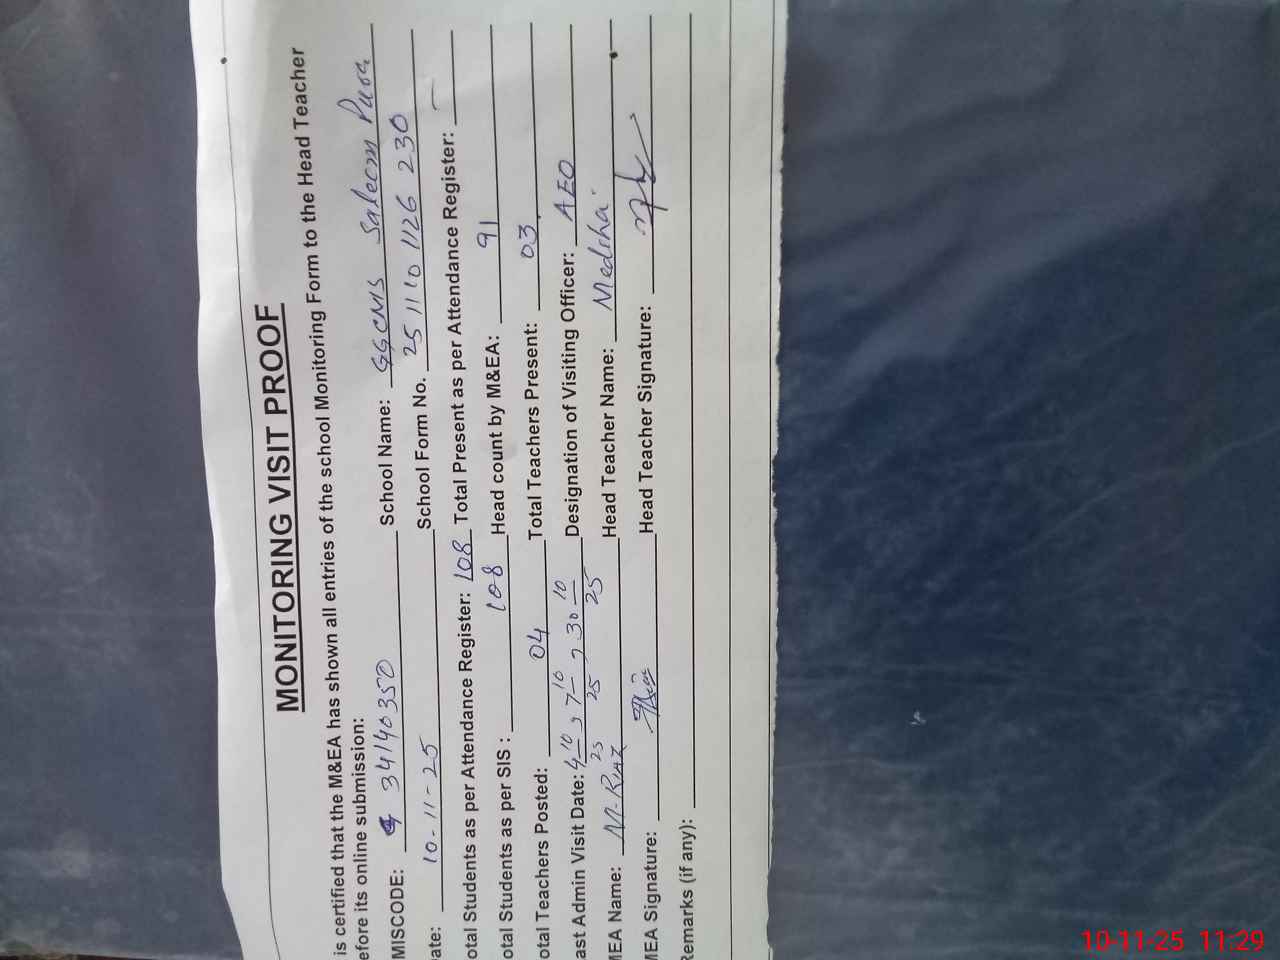 MONITORING VISIT PROOF
is certified that the M&EA has shown all entries of the school Monitoring Form to the Head Teacher
efore its online submission:
MISCODE: 34140350 School Name: GGCMS Saleem Pura
ate: 10-11-25 School Form No. 25 11 10 1126 230
otal Students as per Attendance Register: 108 Total Present as per Attendance Register: —
otal Students as per SIS : 108 Head count by M&EA: 91
otal Teachers Posted: 04 Total Teachers Present: 03
ast Admin Visit Date: 4 10 25, 7 10 25, 30 10 25 Designation of Visiting Officer: AEO
MEA Name: M-Riaz Head Teacher Name: Medihai
MEA Signature: Head Teacher Signature:
Remarks (if any):
10-11-25 11:29